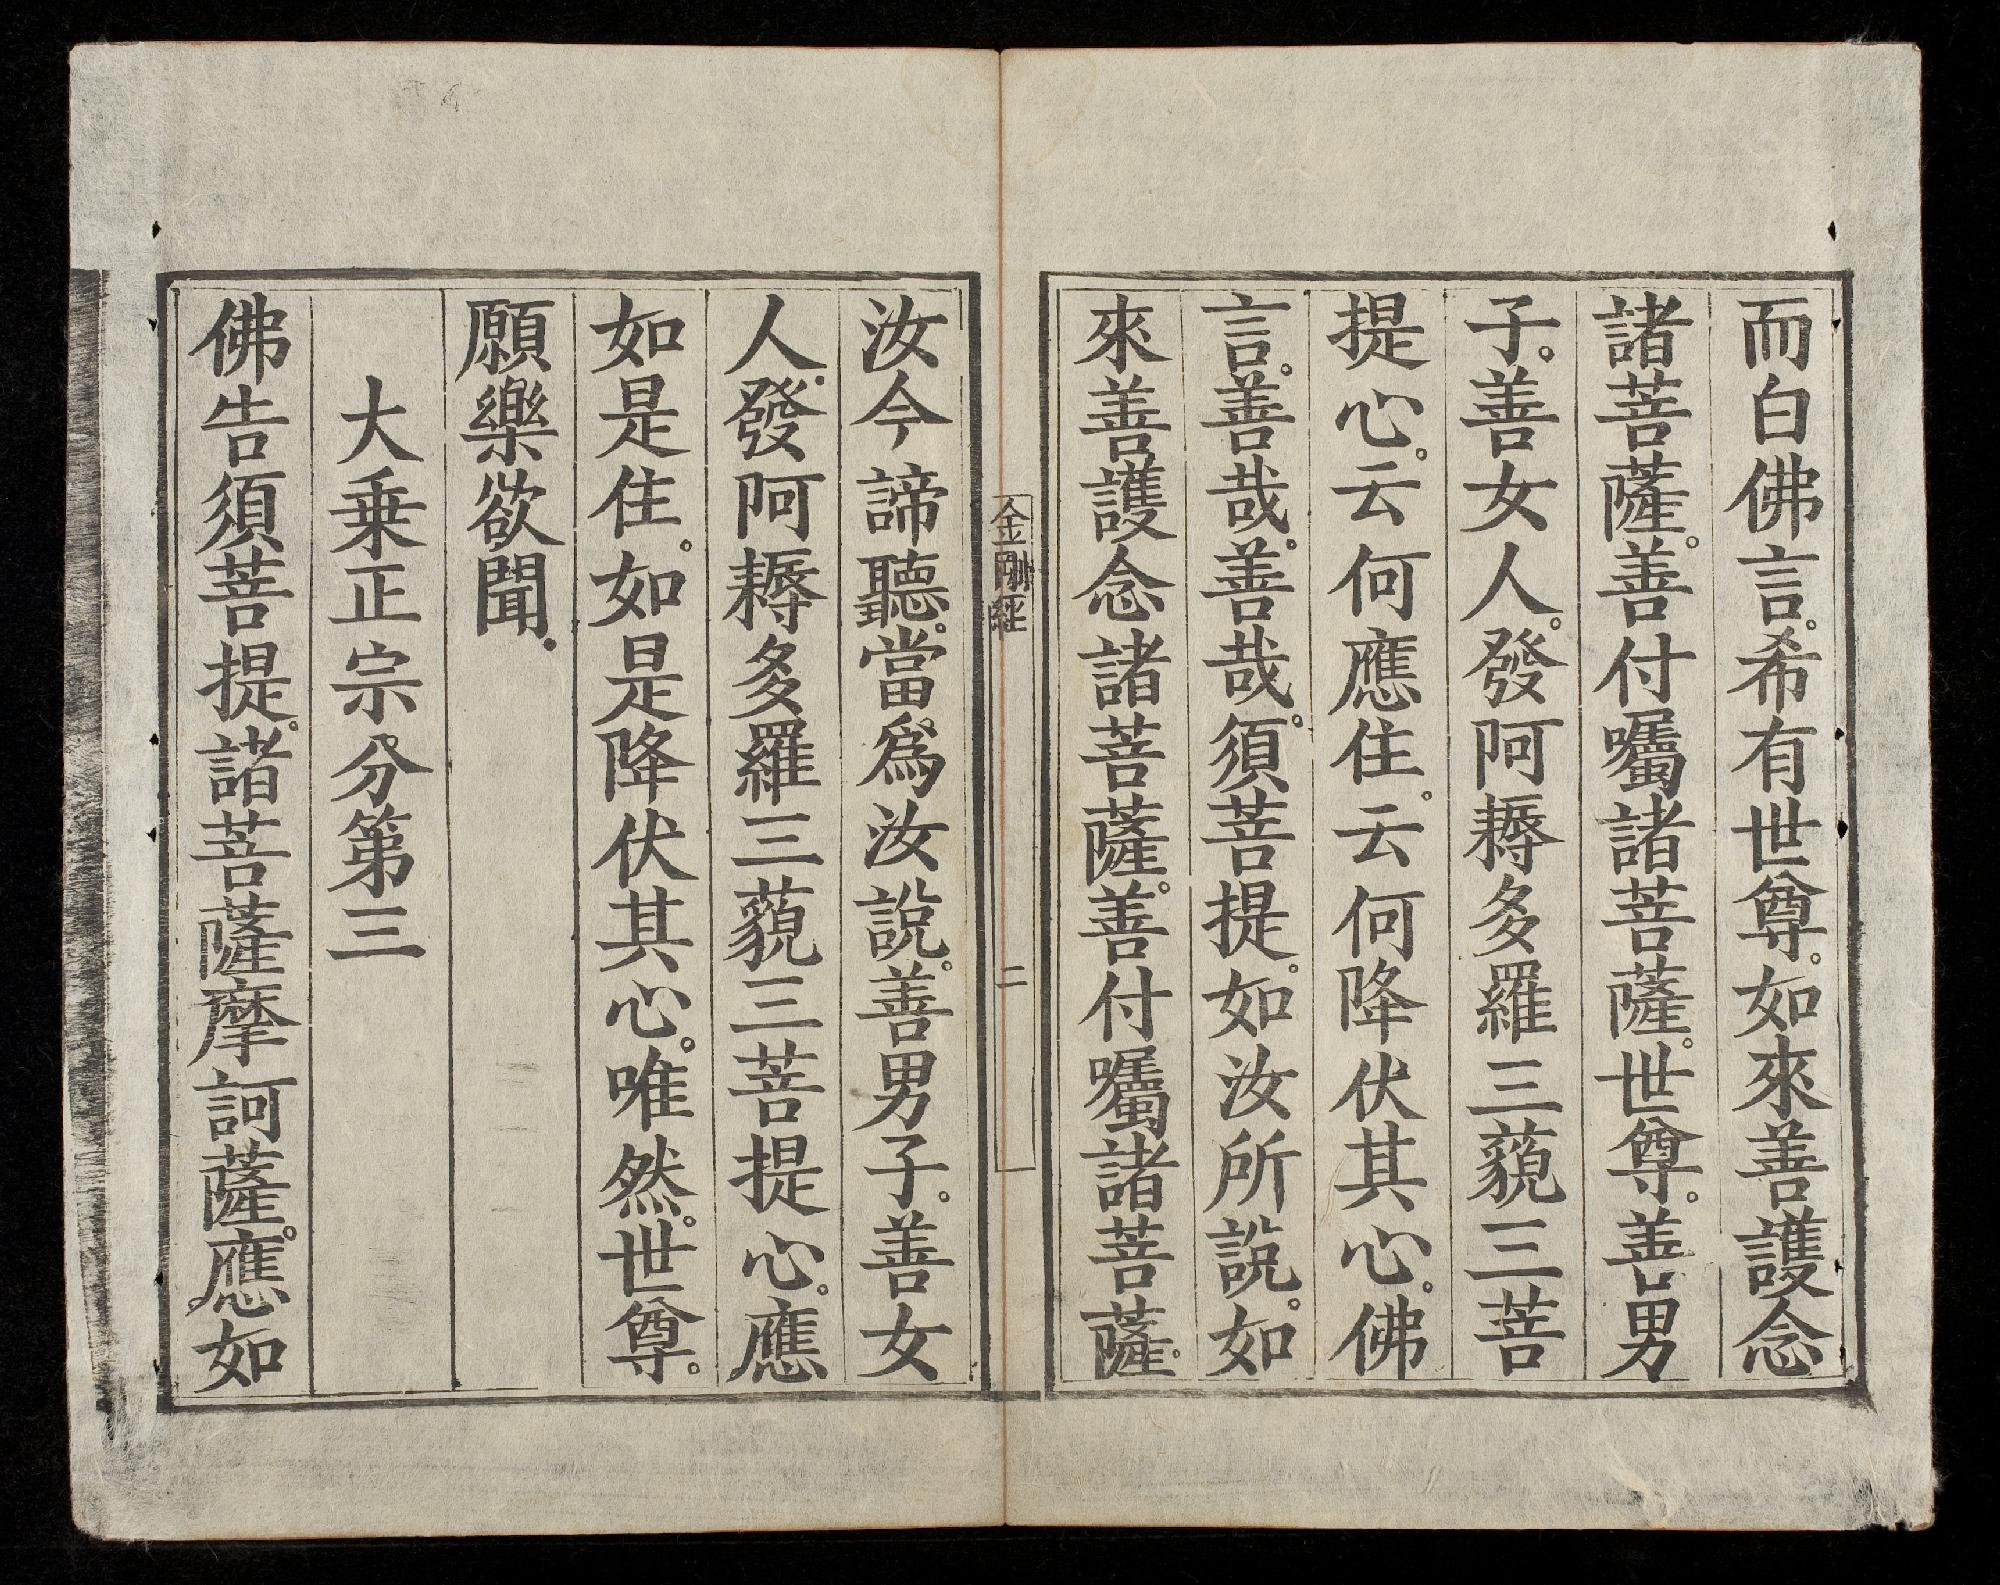 而白佛言。希有世尊。如來善護念
諸菩薩。善付囑諸菩薩。世尊。善男
子。善女人。發阿耨多羅三藐三菩
提心。云何應住。云何降伏其心。佛
言。善哉。善哉。須菩提。如汝所說。如
來善護念諸菩薩。善付囑諸菩薩。
金剛經 二
汝今諦聽。當爲汝說。善男子。善女
人。發阿耨多羅三藐三菩提心。應
如是住。如是降伏其心。唯然。世尊。
願樂欲聞。
大乗正宗分第三
佛告須菩提。諸菩薩摩訶薩。應如